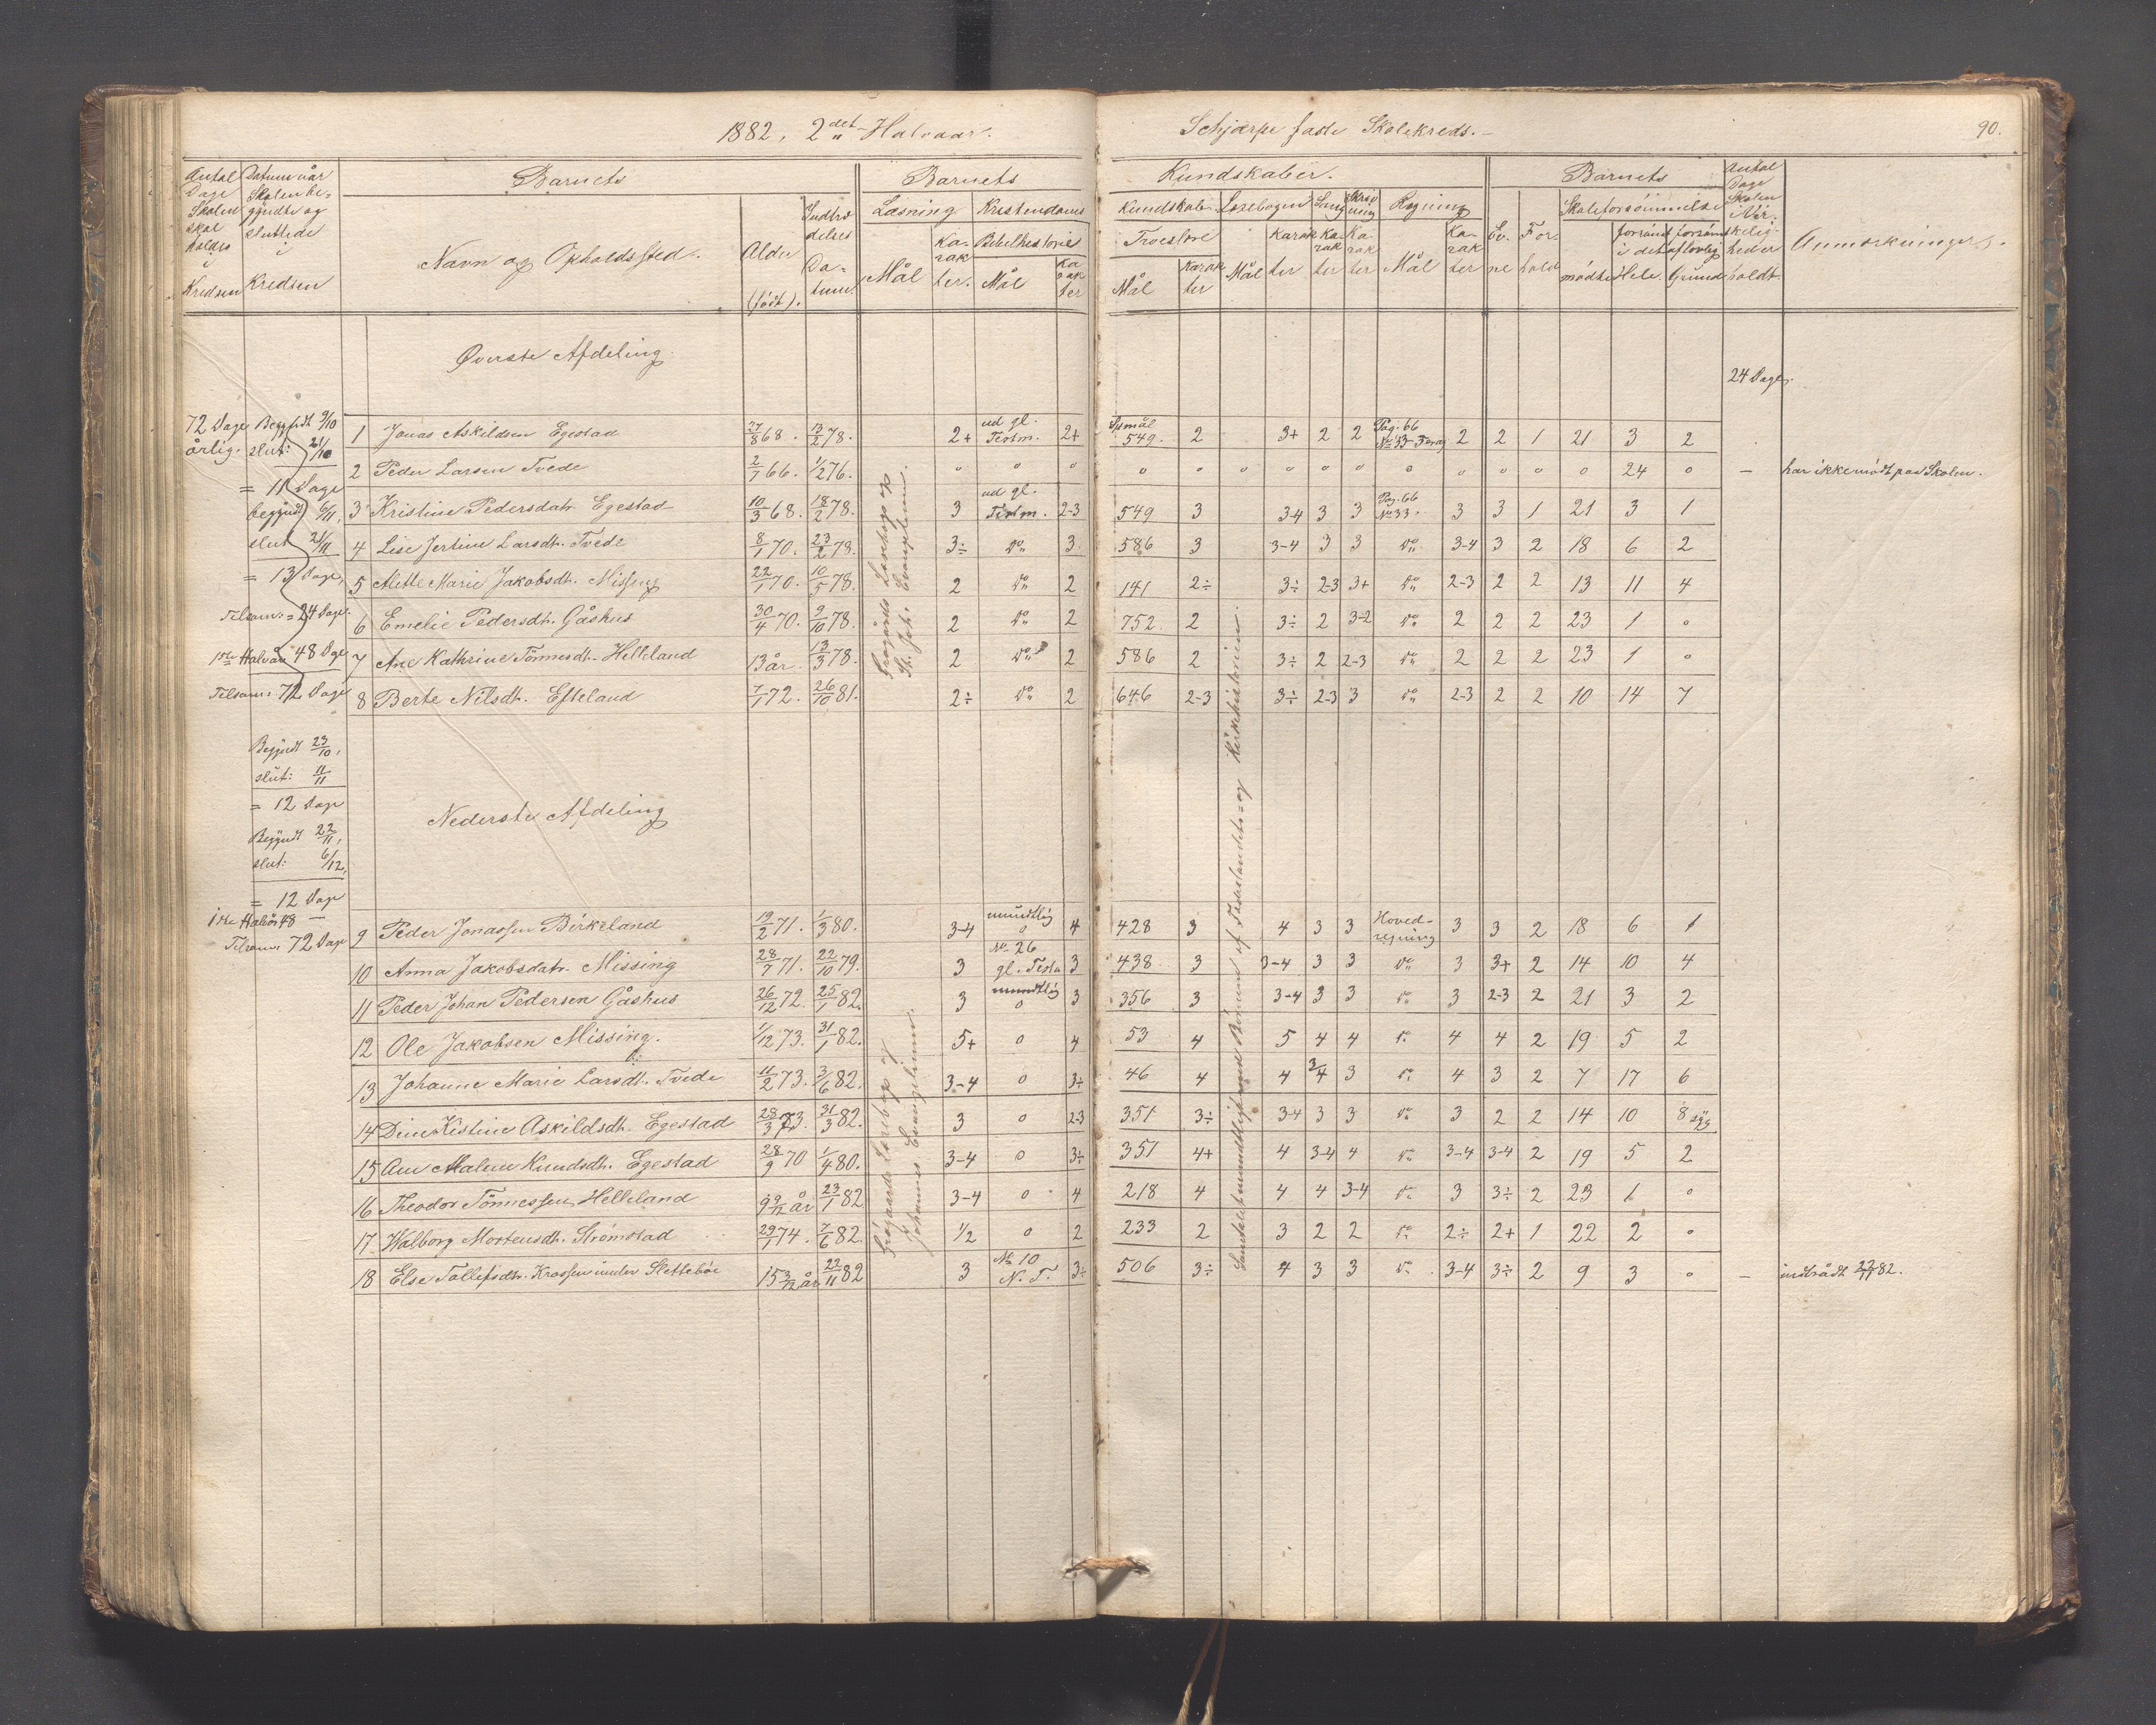 1882, 2det Halvaar.
Schjærpe faste Skolekreds.
90.
Antal Dage Skolen skal holdes i Kredsen
Datum når Skolen begyndte og sluttede i Kredsen
Barnets
Navn og Opholdssted.
Alder (født).
Indtrædelses Datum.
Barnets
Læsning
Mål
Karakter.
Kristendoms
Bibelhistorie
Mål
Karakter
Kundskaber.
Kundskab
Troeslære
Mål
Karakter
Læsebogen
Mål
Karakter
Sang
Karakter
Skrivning
Karakter
Regning
Mål
Karakter
Barnets
Evne
Forhold
Skoleforsömmelse
mödte
forsömt i det Hele.
forsömt af lovlig Grund
Antal Dage Skolen i Virkeligheden holdt.
Anmærkninger.
Øverste Afdeling.
24 Dage.
72 Dage årlig.
Begyndt 9/10
slut: 21/10
= 11 Dage
begyndt 6/11,
slut 21/11
= 13 Dage,
Tilsam: = 24 Dage.
1ste Halvår 48 Dge
Tilsam: 72 Dage
Frøgårds Læsebog og St. Joh. Evangelium.
1 Jonas Askildsen Egestad 27/8 68. 13/2 78. 2+ ud gl. Testm. 2+ Spsmål 549. 2 3+ 2 2 Pag. 66 No 33 2 2 1 21 3 2
2 Peder Larsen Tvede 2/7 66. 1/2 76. o o o o o o o o o o o o o o 24 o – har ikke mödt paa Skolen.
3 Kristine Pedersdatr. Egestad 10/3 68. 18/2 78. 3 ud gl. Testm. 2-3 549 3 3-4 3 3 Pag. 66 No 33. 3 3 1 21 3 1
4 Lise Jertine Larsdtr. Tvede 8/1 70. 23/2 78. 3÷ Do 3. 586 3 3-4 3 3 Do 3-4 3 2 18 6 2
5 Mette Marie Jakobsdt. Missing 22/1 70. 10/5 78. 2 Do 2 141 2÷ 3÷ 2-3 3+ Do 2-3 2 2 13 11 4
6 Emelie Pedersdt. Gåshus 30/4 70. 9/10 78. 2 Do 2 752. 2 3÷ 2 3-2 Do 2 2 2 23 1 o
7 Ane Kathrine Tönnesdt. Helleland 13 år. 13/3 78. 2 Do 2 586 2 3÷ 2 2-3 Do 2 2 2 23 1 o
8 Berte Nilsdt. Efteland 7/1 72. 26/10 81. 2÷ Do 2 646 2-3 3÷ 2-3 3 Do 2-3 2 2 10 14 7
Begyndt 23/10,
slut: 11/11
= 12 Dage
Begyndt 22/11,
slut: 6/12,
= 12 Dage
1ste Halvår 48 –
Tilsam: 72 Dage
Nederste Afdeling
9 Peder Jonassen Birkeland 19/2 71. 1/3 80. 3-4 mundtlig o 4 428 3 4 3 3 Hovedregning 3 3 2 18 6 1
10 Anna Jakobsdatr. Missing 28/7 71. 22/10 79. 3 No 26 gl. Testa 3 438 3 3-4 3 3 Do 3 3+ 2 14 10 4
11 Peder Johan Pedersen Gåshus 26/12 72. 25/1 82. 3 mundtlig o 3 356 3 3-4 3 3 Do 3 2-3 2 21 3 2
12 Ole Jakobsen Missing. 1/12 73. 31/1 82. 5+ o 4 53 4 5 4 4 Do 4 4 2 19 5 2
13 Johanne Marie Larsdt. Tvede 11/2 73. 3/6 82. 3-4 o 3÷ 46 4 4 3/4 3 Do 4 3 2 7 17 6
14 Dine Kistine Askildsdt. Egestad 28/3 73. 31/3 82. 3 o 2-3 351 3÷ 3-4 3 3 Do 3 2 2 14 10 8 syg
15 Ane Malene Knudsdt. Egestad 28/9 70 1/4 80. 3-4 o 3÷ 351 4+ 4 3-4 4 Do 3-4 3-4 2 19 5 2
16 Theodor Tönnessen Helleland 9 9/12 år 23/1 82 3-4 o 4 218 4 4 4 3-4 Do 3 3÷ 2 23 1 o
17 Walborg Mortensdt. Strömstad 29/1 74. 7/6 82. 1/2 o 2 233 2 3 2 2 Do 2÷ 2+ 1 22 2 o
18 Else Tollefsdtr. Krossen under Slettebøe 15 3/12 år 22/11 82 3 No 10 N. T. 3÷ 506 3÷ 4 3 3 Do 3-4 3÷ 2 9 3 o – indtrådt 22/11 82.
Læsebog og Johannes Evangelium.
Samtalet mundtlig med Börnene af Fædrelandets- og Kirkehistorien.